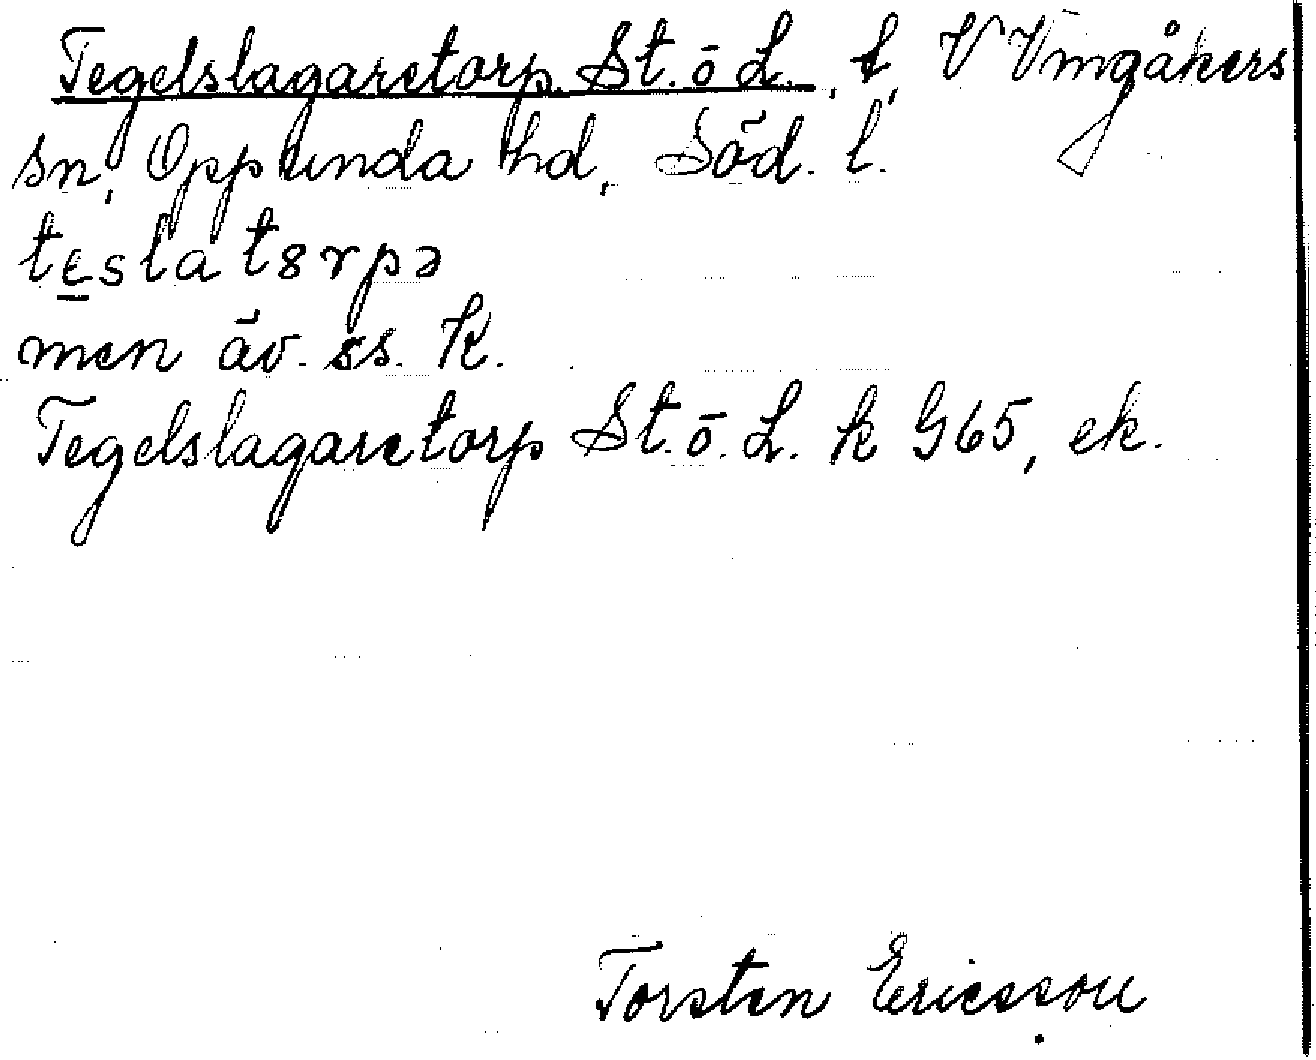 Tegelslagaretorp St. o L., t, V Vingåkers
sn, Oppunda hd, Söd. l.
tɛslatɞrpə
men äv. ss. K.
Tegelslagaretorp St. o. L. k G65, ek.
Torsten Ericsson